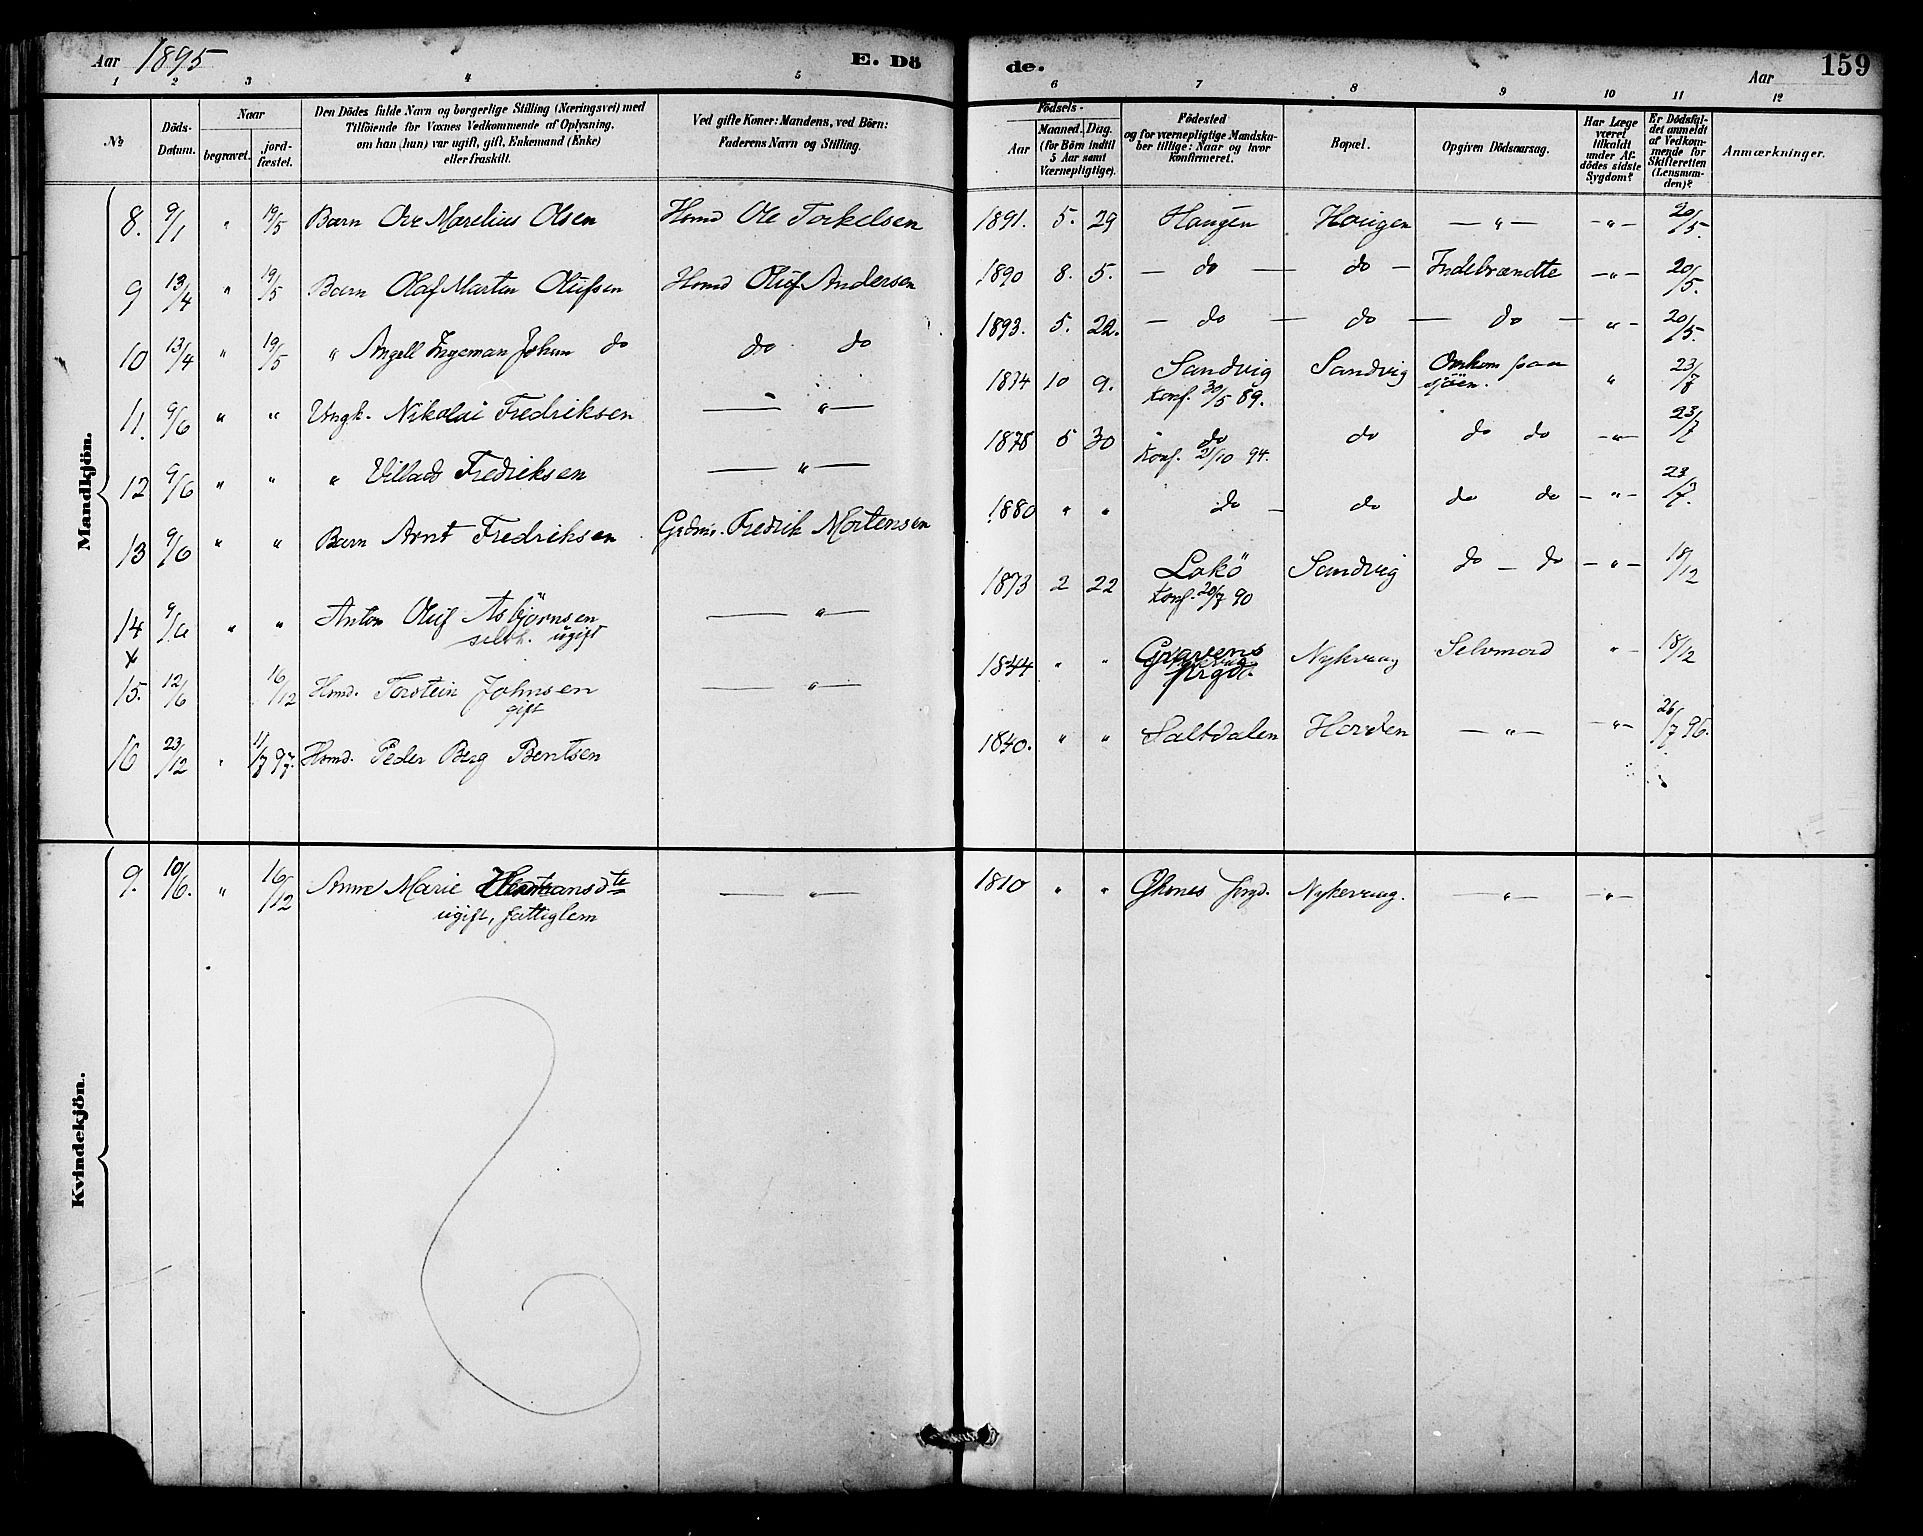 Aar 1895 E. Dö de. Aar 159
1 2 3 4 5 6 7 8 9 10 11 12
No.
Döds-Datum.
Naar
begravet.
jord-fæstet.
Den Dödes fulde Navn og borgerlige Stilling (Næringsvei) med
Tilföiende for Voxnes Vedkommende af Oplysning,
om han (hun) var ugift, gift, Enkemand (Enke)
eller fraskilt.
Ved gifte Koner: Mandens, ved Börn:
Faderens Navn og Stilling.
Födsels-
Aar
Maaned. Dag.
(for Börn indtil
5 Aar samt
Værnepligtige).
Födested
og for værnepligtige Mandska-
ber tillige: Naar og hvor
konfirmeret.
Bopæl.
Opgiven Dödsaarsag.
Har Læge
været
tilkaldt
under Af-
dödes sidste
Sygdom?
Er Dödsfal-
det anmeldt
af Vedkom-
mende for
Skifteretten
(Lensman-
den)?
Anmærkninger.
Mandkjön.
8. 9/1 " 19/5 Barn Ove Marelius Olsen Hsmd Ole Torkelsen 1891. 5. 29 Haugen Haugen — " — — " — 20/5.
9 13/4 " 19/5 Barn Olaf Martin Olufsen Hsmd Oluf Andersen 1890 8. 5. — do — do — Indebrændte — " — 20/5.
10 13/4 " 19/5 " Angell Ingeman Johan do do do 1893. 5. 22. — do — do — do — " — 20/5.
11. 9/6 " " Ungk. Nikolai Fredriksen — " — 1874 10 9. Sandvig Sandvig Omkom paa sjöen. " 23/7
Konf. 30/5 89.
12 9/6 " " " Villads Fredriksen — " — 1878 5 30 do do do do — " — 23/7
Konf. 21/10 94.
13 9/6 " " Barn Arnt Fredriksen Grdmr. Fredrik Mortensen 1880 " " do — do do do — " — 23/7.
14 9/6 " " Anton Oluf Asbjørnsen — " — 1873 2 22 Lokö Sandvig do — do — " — 18/12
x ugift Konf. 20/7 90
15. 12/6 16/12 Hsmd. Torstein Johnsen — " — 1844 " " Gravens Prgd. Nykvaag Selvmord " — 18/12
gift
16 23/12 " 11/7 97. Hsmd. Peder Berg Bentsen 1840. " " Saltdalen Horden — " — — " — 26/7 96.
Kvindekjön.
9. 10/6. " 16/12 Anne Marie — " — 1810 " " prgd. Nykevaag. — " — — " —
ugift, fattiglem